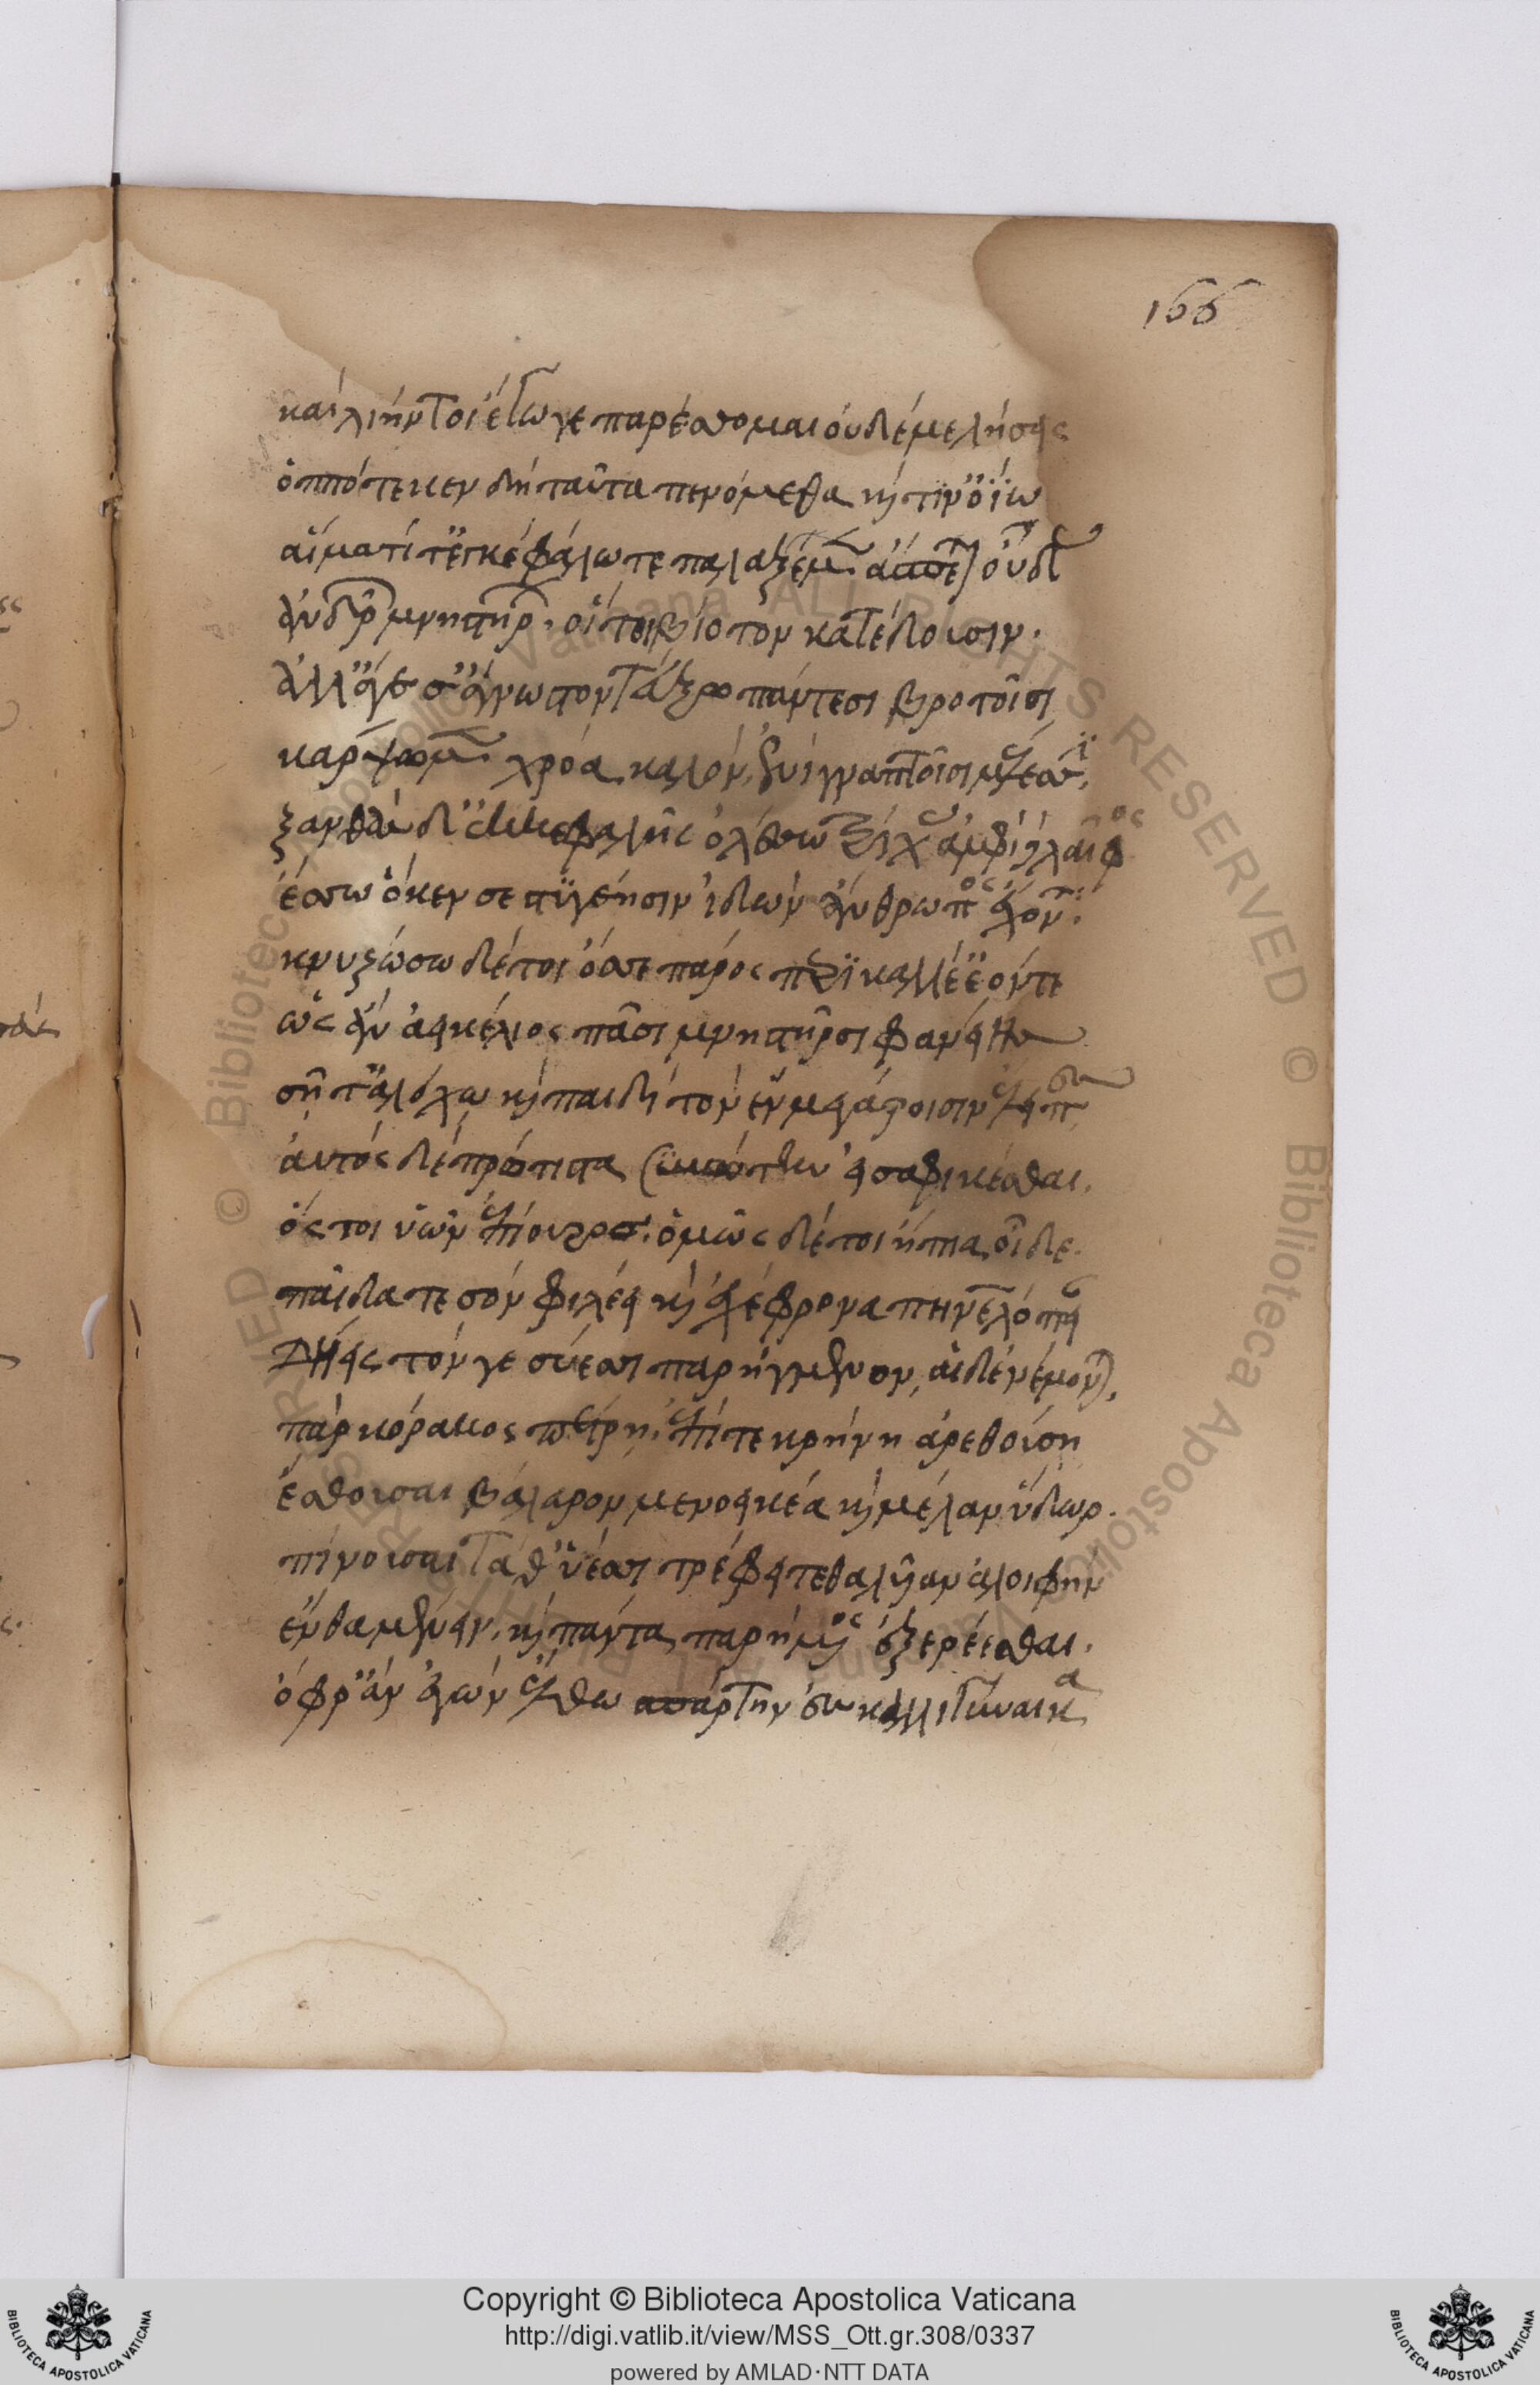 166
καὶ λίην τοι ἔγωγε παρέσσομαι οὐδέ με λήσεις
ὁππότε κεν δὴ ταῦτα πενώμεθα καί τιν' ὀΐω
αἵματί τ' ἐγκεφάλω τε παλαξέμεν ἄσπετον οὖδας
ἀνδρῶν μνηστήρων. οἵ τοι βίοτον κατέδουσιν.
ἀλλ' ἄγε σ' ἄγνωστον τεύξω πάντεσι βροτοῖσι
κάρψω μὲν χρόα καλὸν ἐνὶ γναμπτοῖσι μέλεσσι,
ξανθὰς δ' ἐκ κεφαλῆς ὀλέσω τρίχας ἀμφὶ δὲ λαῖφος
ἕσσω ὅ κεν στυγέησιν ἰδὼν ἄνθρωπος ἔχοντα.
κνυζώσω δέ τοι ὄσσε πάρος περικαλλέ' ἐόντε
ὡς ἂν ἀεικέλιος πᾶσι μνηστῆρσι φανείης
σῇ τ' ἀλόχω καὶ παιδὶ τὸν ἐν μεγάροισιν ἔλειπες
αὐτὸς δὲ πρώτιστα συβώτην εἰσαφικέσθαι.
ὅς τοι ὑῶν ἐπίουρος. ὁμῶς δέ τοι ἤπια οἶδε.
παῖδά τε σὸν φιλέει καὶ ἐχέφρονα πηνελόπειαν
δήεις τόν γε σύεσσι παρήμενον, αἱ δὲ νέμονται,
πὰρ κόρακος πέτρῃ, ἐπί τε κρήνη ἀρεθούση
ἔσθουσαι βάλανον μενοεικέα καὶ μέλαν ὕδωρ.
πίνουσαι τά θ' ὕεσσι τρέφει τεθαλυῖαν ἀλοιφήν
ἔνθα μένειν. καὶ πάντα παρήμενος ἐξερέεσθαι.
ὄφρ' ἂν ἐγὼν ἔλθω σπάρτην ἐς καλλιγύναικα
Copyright © Biblioteca Apostolica Vaticana
http://digi.vatlib.it/view/MSS_Ott.gr.308/0337
powered by AMLAD·NTT DATA